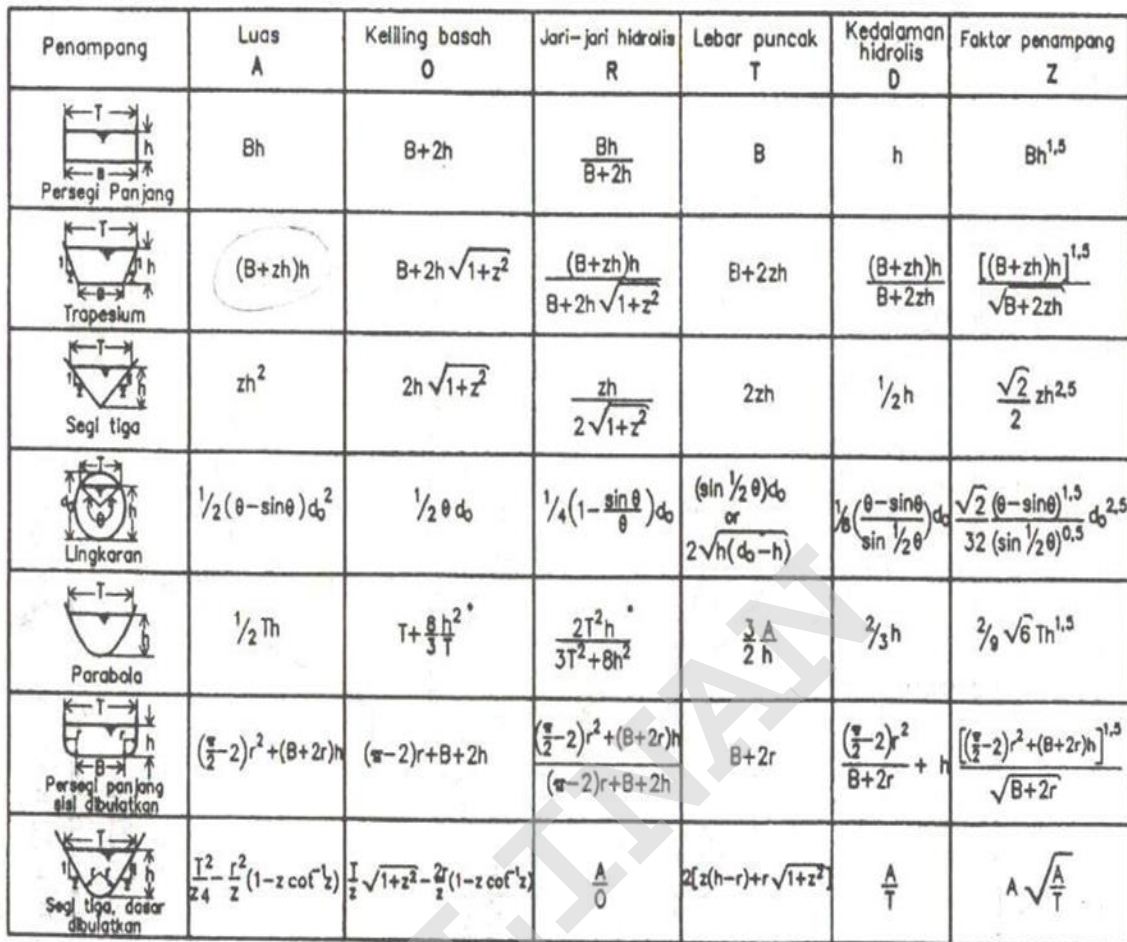 Penampang | Luas A | Keliling basah O | Jari-jari hidrolis R | Lebar puncak T | Kedalaman hidrolis D | Faktor penampang Z
T h B Persegi Panjang | Bh | B+2h | Bh/(B+2h) | B | h | Bh^1,5
T 1 z h B 1 z Trapesium | (B+zh)h | B+2h√(1+z²) | (B+zh)h/(B+2h√(1+z²)) | B+2zh | (B+zh)h/(B+2zh) | [(B+zh)h]^1,5/√(B+2zh)
T 1 z h 1 z Segi tiga | zh² | 2h√(1+z²) | zh/(2√(1+z²)) | 2zh | 1/2 h | (√2/2) zh^2,5
T d₀ θ h Lingkaran | 1/2(θ-sinθ)d₀² | 1/2 θ d₀ | 1/4(1-sin θ/θ)d₀ | (sin 1/2 θ)d₀ or 2√(h(d₀-h)) | 1/8((θ-sinθ)/(sin 1/2 θ))d₀ | (√2/32) (θ-sinθ)^1,5/(sin 1/2 θ)^0,5 d₀^2,5
T h Parabola | 1/2 Th | T+(8/3)(h²/T)* | 2T²h/(3T²+8h²)* | (3/2)(A/h) | 2/3 h | 2/9 √6 Th^1,5
T r r h B Persegi panjang sisi dibulatkan | (π/2-2)r²+(B+2r)h | (π-2)r+B+2h | ((π/2-2)r²+(B+2r)h)/((π-2)r+B+2h) | B+2r | (π/2-2)r²/(B+2r) + h | [(π/2-2)r²+(B+2r)h]^1,5/√(B+2r)
T 1 z r r 1 z h Segi tiga, dasar dibulatkan | T²/z4 - r²/z (1-z cot⁻¹z) | T/z √(1+z²) - 2r/z (1-z cot⁻¹z) | A/O | 2[z(h-r)+r√(1+z²)] | A/T | A√(A/T)
LINAN